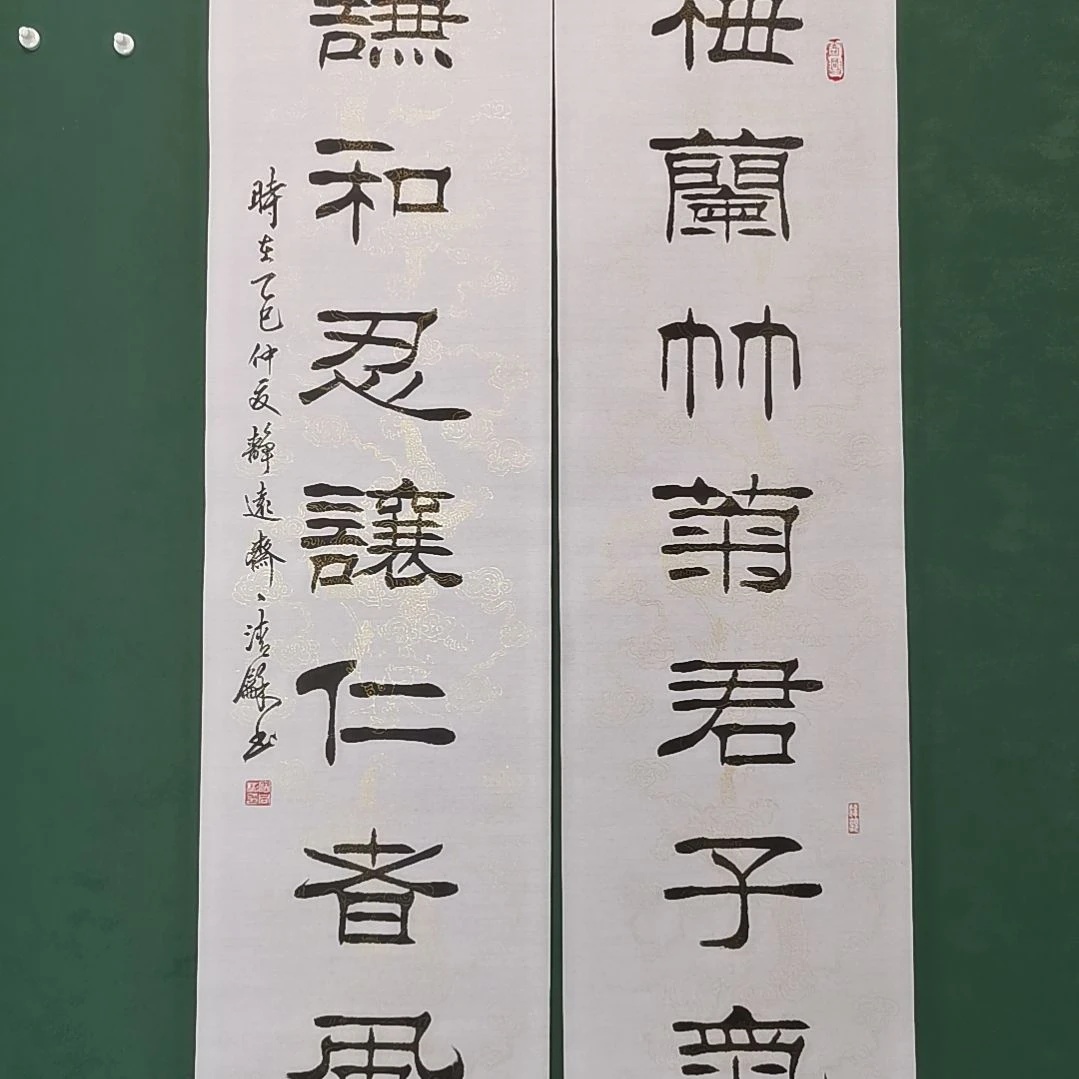 梅蘭竹菊君子氣
謙和忍讓仁者風
時在乙巳仲夏靜遠齋清书